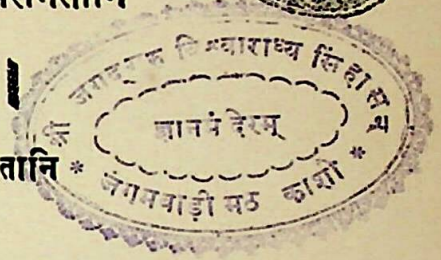 श्री जगद्गुरु विश्वाराध्य सिंहासन
ज्ञानमंदिरम्
तानि
* जंगमवाड़ी मठ काशी *